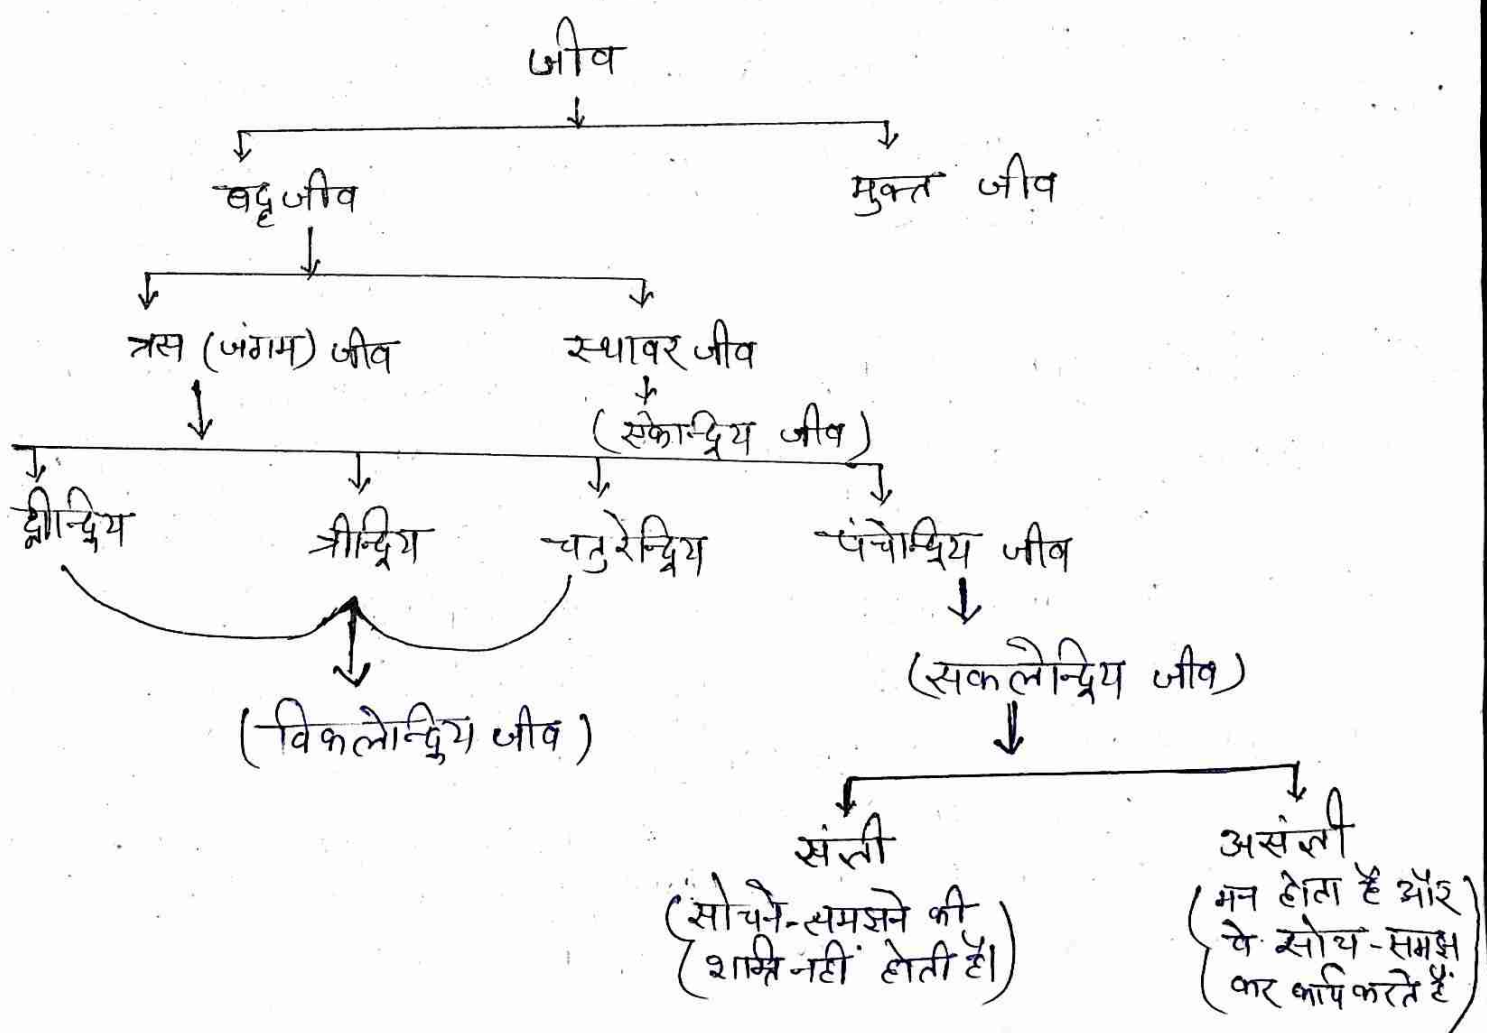 जीव
बद्ध जीव
मुक्त जीव
त्रस (जंगम) जीव
स्थावर जीव
(एकेन्द्रिय जीव)
द्वीन्द्रिय
त्रीन्द्रिय
चतुरेन्द्रिय
पंचेन्द्रिय जीव
(सकलेन्द्रिय जीव)
(विकलेन्द्रिय जीव)
संज्ञी
असंज्ञी
(सोचने-समझने की
शक्ति नहीं होती है।)
(मन होता है और
वे सोच-समझ
कर कार्य करते हैं)